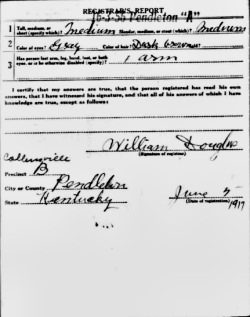 REGISTRAR'S REPORT
16-3-56 Pendleton "A"
1 Tall, medium, or short (specify which)? Medium Slender, medium, or stout (which)? Medium
2 Color of eyes? Gray Color of hair? Dark brown
3 Has person lost arm, leg, hand, foot, or both eyes, or is he otherwise disabled (specify)? 1 arm
I certify that my answers are true, that the person registered has read his own answers, that I have witnessed his signature, and that all of his answers of which I have knowledge are true, except as follows:
William Douglas
(Signature of registrar)
Collinsville
Precinct B
City or County Pendleton
State Kentucky
June 5 1917
(Date of registration)